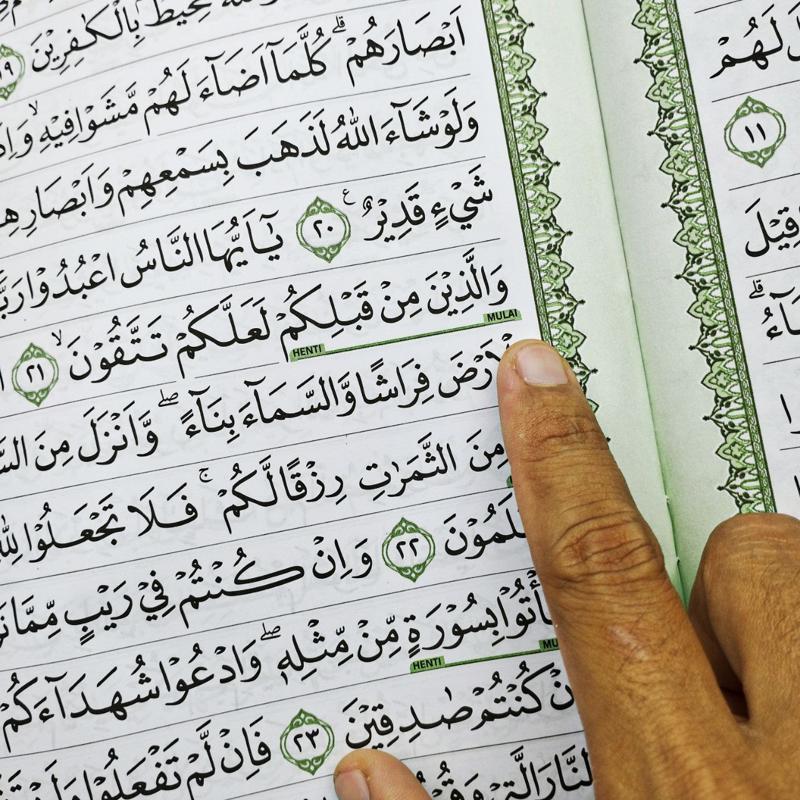 مُحِيْطٌ بِالْكٰفِرِيْنَ ١٩
اَبْصَارَهُمْ ۗ كُلَّمَآ اَضَاۤءَ لَهُمْ مَّشَوْا فِيْهِ ۙ وَاِذَ
وَلَوْ شَاۤءَ اللّٰهُ لَذَهَبَ بِسَمْعِهِمْ وَاَبْصَارِهِ
شَيْءٍ قَدِيْرٌ ࣖ ٢٠ يٰٓاَيُّهَا النَّاسُ اعْبُدُوْا رَبَّ
وَالَّذِيْنَ مِنْ قَبْلِكُمْ لَعَلَّكُمْ تَتَّقُوْنَ ۙ ٢١ ا
MULAI
HENTI
رْضَ فِرَاشًا وَّالسَّمَاۤءَ بِنَاۤءً ۖ وَّاَنْزَلَ مِنَ الس
مِنَ الثَّمَرٰتِ رِزْقًا لَّكُمْ ۚ فَلَا تَجْعَلُوْا لِلّٰهِ
لَمُوْنَ ٢٢ وَاِنْ كُنْتُمْ فِيْ رَيْبٍ مِّمَّا نَز
أْتُوْا بِسُوْرَةٍ مِّنْ مِّثْلِهٖ ۖ وَادْعُوْا شُهَدَاۤءَكُمْ
MU
HENTI
نْ كُنْتُمْ صٰدِقِيْنَ ٢٣ فَاِنْ لَّمْ تَفْعَلُوْا وَلَنْ تَفْ
النَّارَ الَّتِيْ وَقُ
لَهُمْ
١١
قِيْلَ